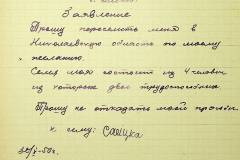 Заявление
Прошу переселить меня в
Николаевскую область по моему
желанию.
Семья моя состоит из 4 человек
из которых двое трудоспособных
Прошу не отказать моей просьбе.
к сему: